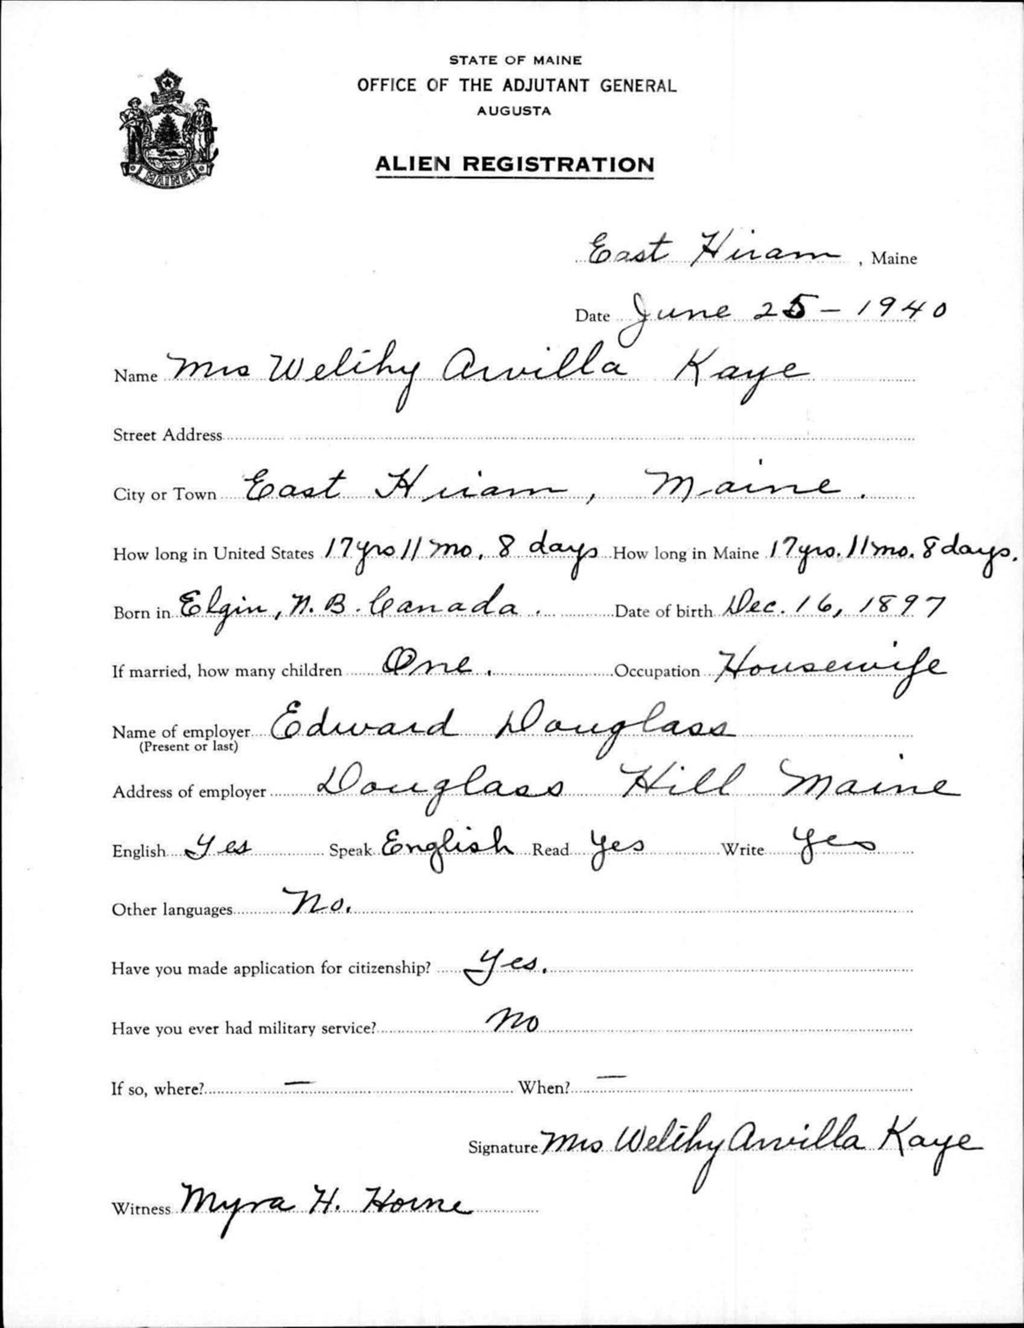 STATE OF MAINE
OFFICE OF THE ADJUTANT GENERAL
AUGUSTA
ALIEN REGISTRATION
MAINE
East Hiram, Maine
Date June 25 - 1940
Name Mrs Welthy Arvilla Kaye
Street Address
City or Town East Hiram, Maine.
How long in United States 17 yrs 11 mo. 8 days How long in Maine 17 yrs. 11 mo. 8 days.
Born in Elgin, N.B. Canada. Date of birth Dec. 16, 1897
If married, how many children One. Occupation Housewife
Name of employer Edward Douglass
(Present or last)
Address of employer Douglass Hill Maine
English Yes Speak English Read Yes Write Yes
Other languages No.
Have you made application for citizenship? Yes.
Have you ever had military service? No
If so, where? — When? —
Signature Mrs Welthy Arvilla Kaye
Witness Myra H. Horne